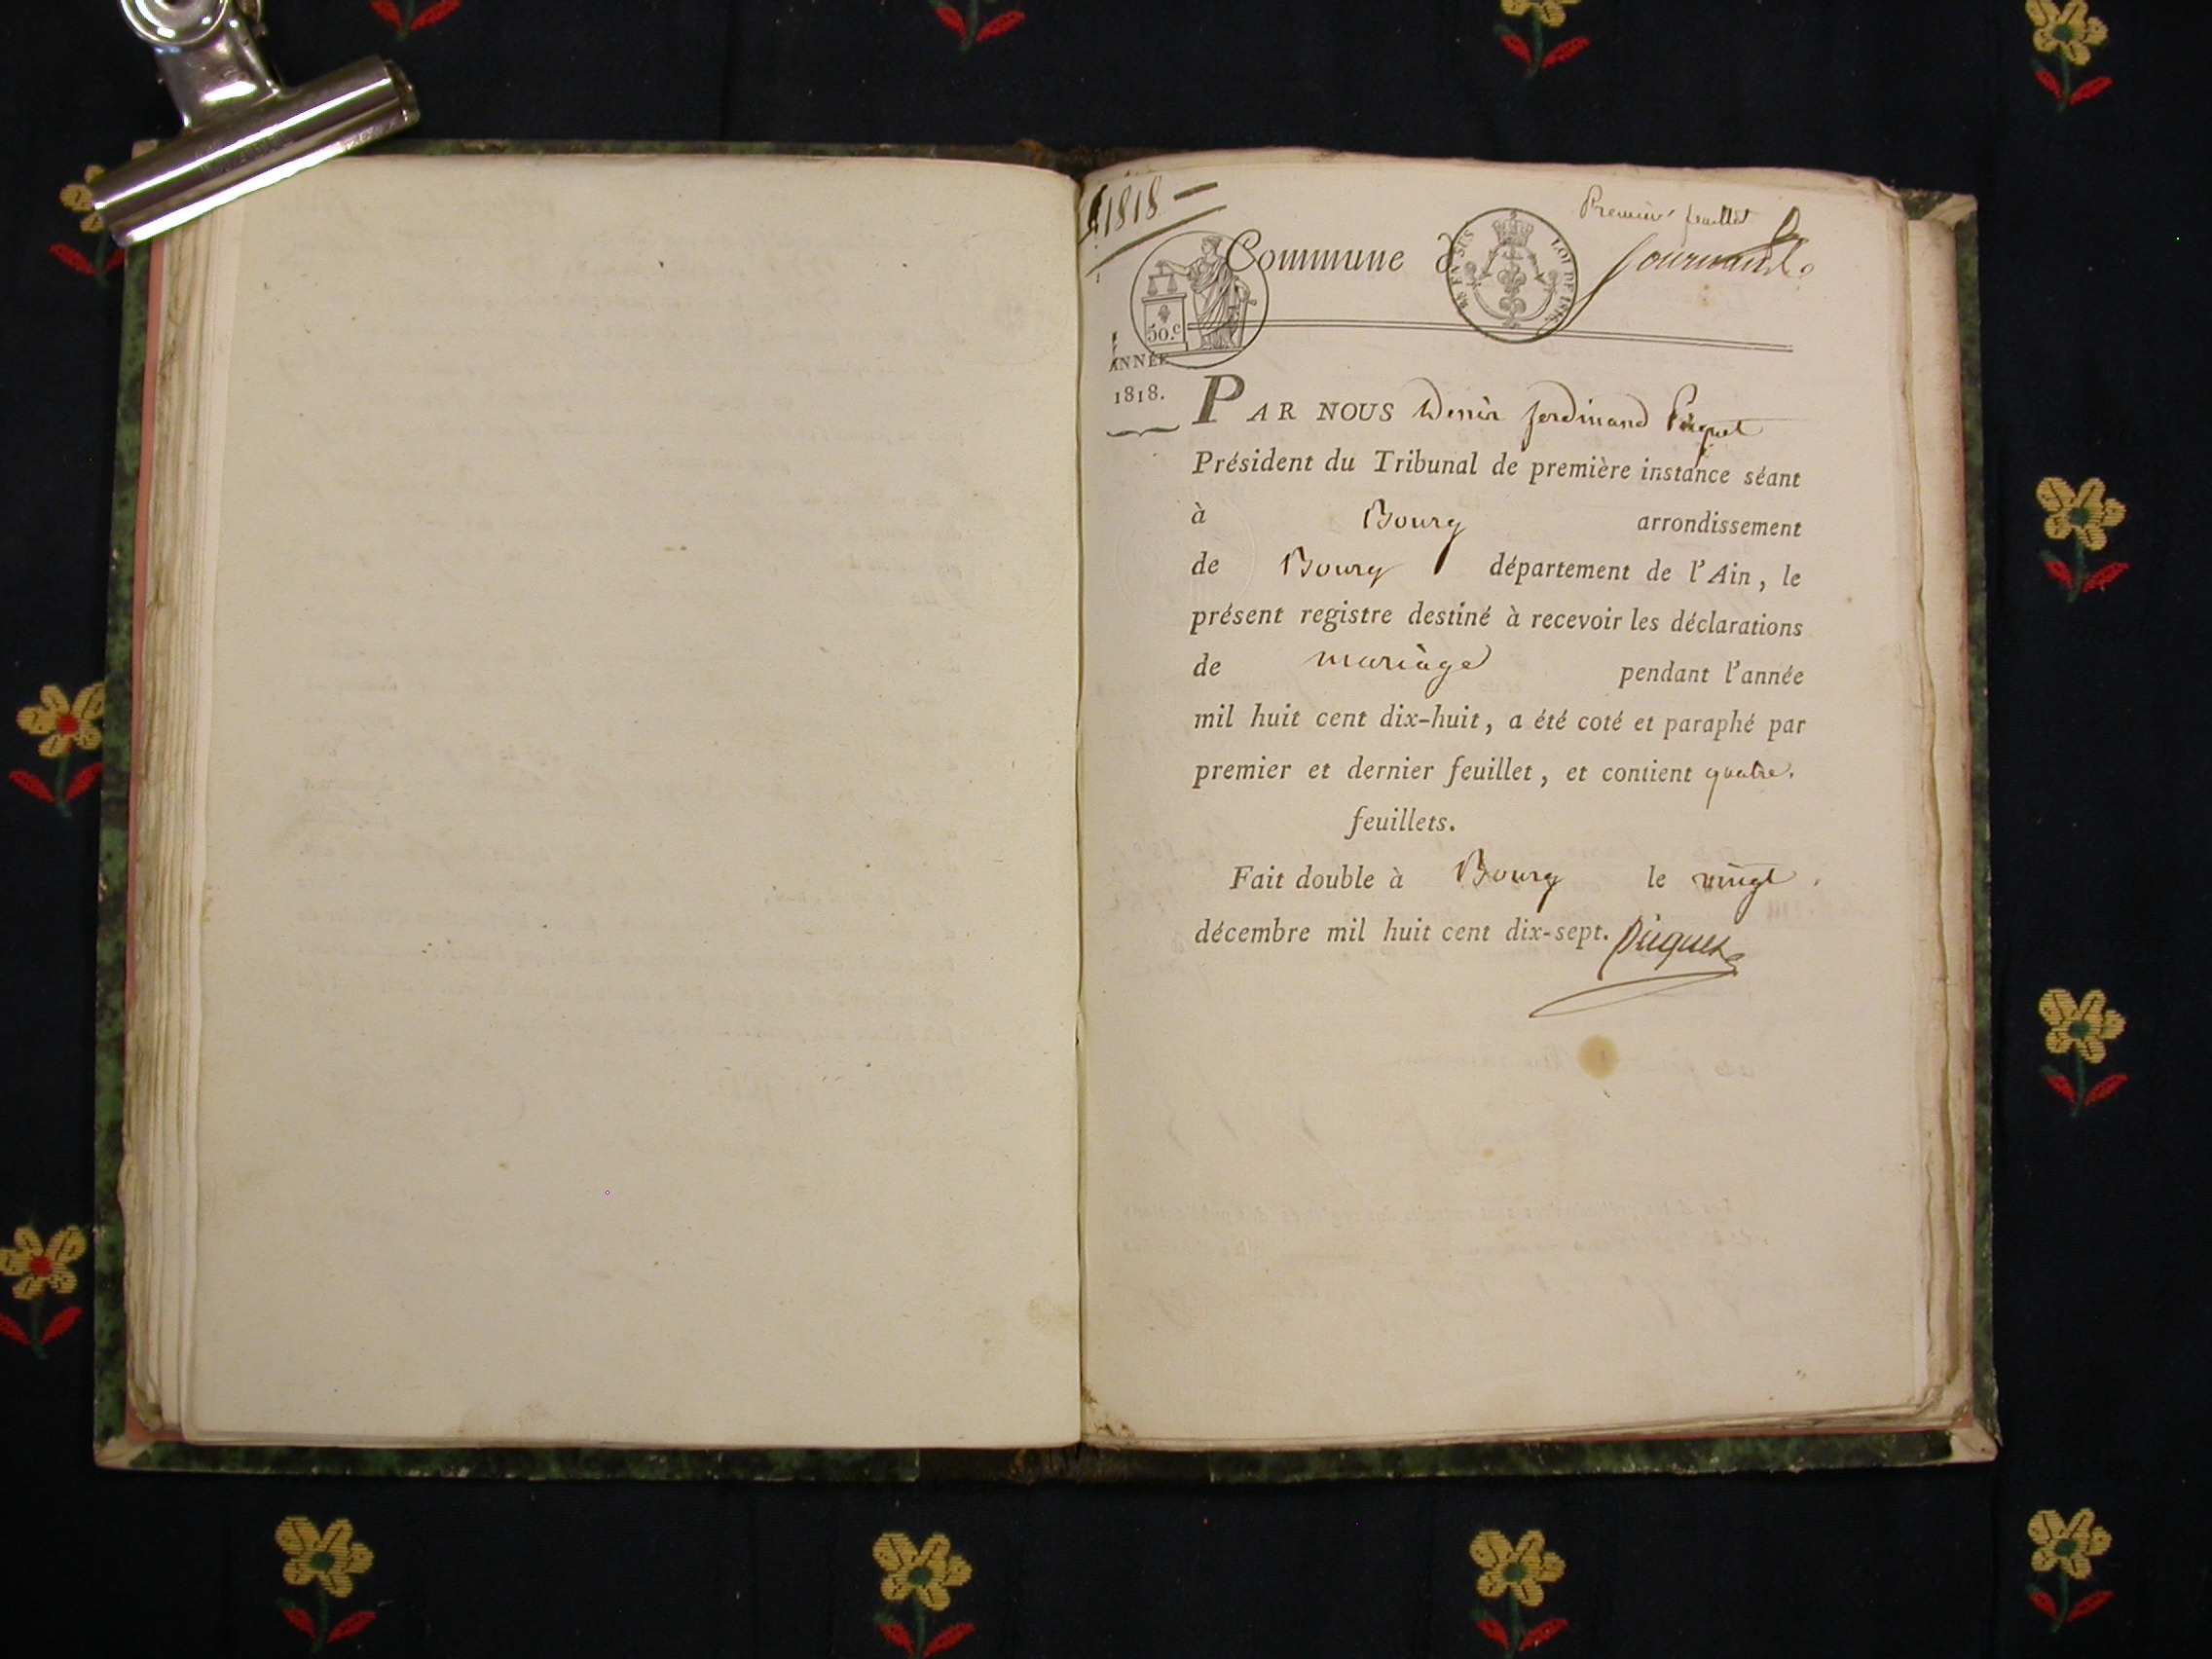 1818 —
Premier feuillet
Commune d
50.c
ANNÉE
1818.
PAR NOUS Denis ferdinand Piquet
Président du Tribunal de première instance séant
à Bourg arrondissement
de Bourg département de l'Ain, le
présent registre destiné à recevoir les déclarations
de mariage pendant l'année
mil huit cent dix-huit, a été coté et paraphé par
premier et dernier feuillet, et contient quatre.
feuillets.
Fait double à Bourg le vingt
décembre mil huit cent dix-sept. Piquet